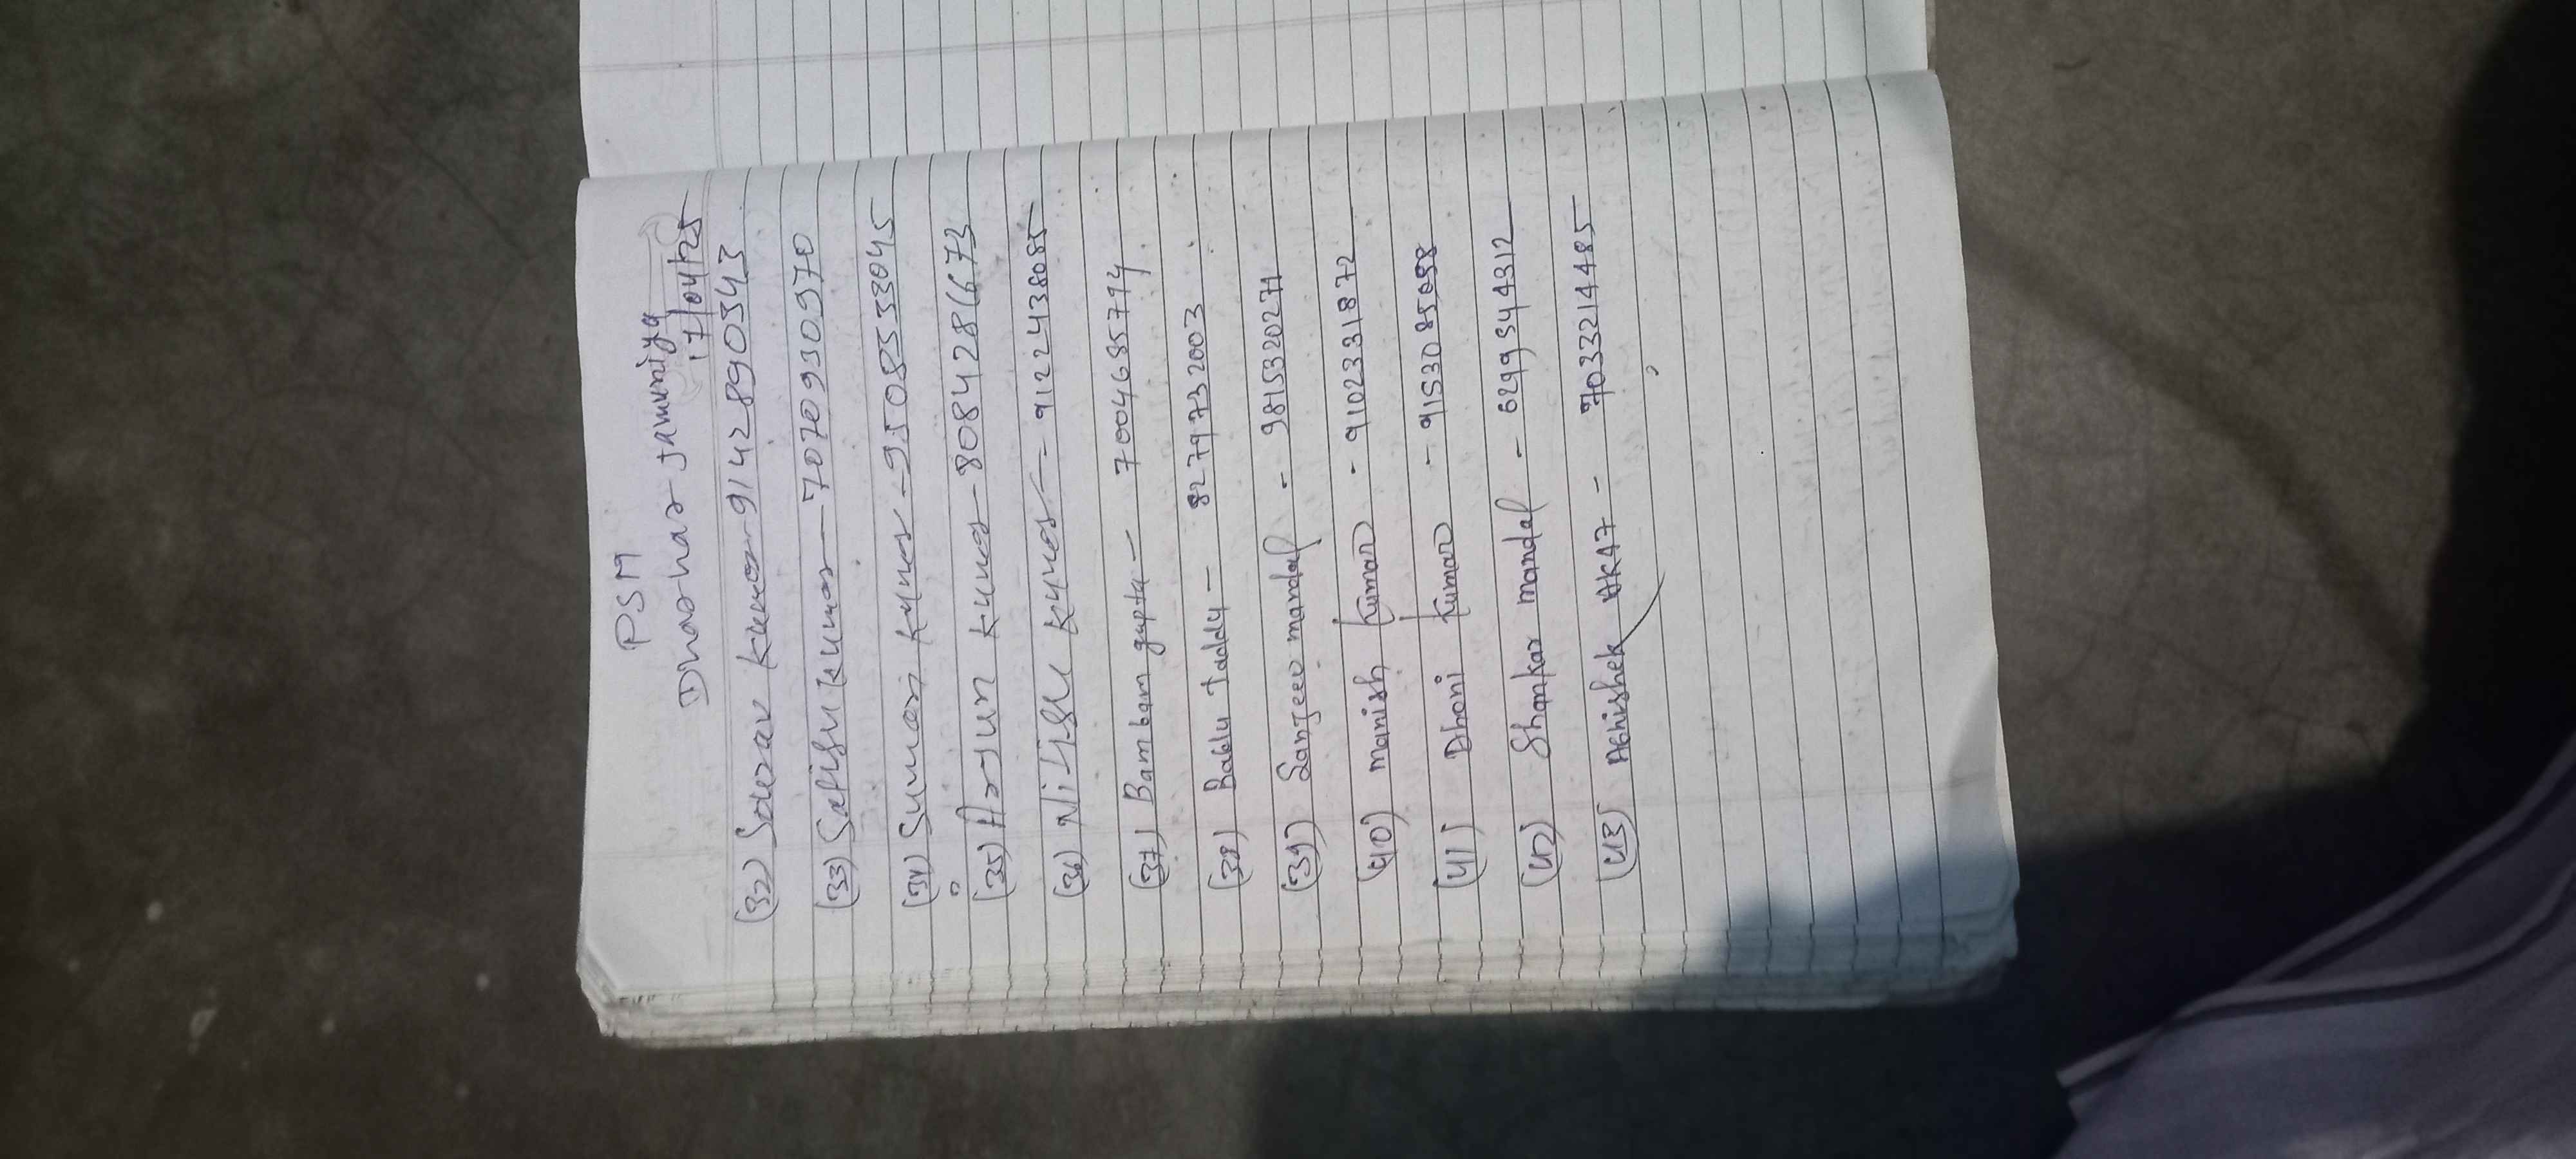 PSM
Dharhar Jamuniya
17/04/25
(32) Sourav kumar - 9142890343
(33) Satish kumar - 7070930970
(34) Suman kumar - 9508533045
(35) Arjun kumar - 8084286673
(36) Nitish kumar - 9122438085
(37) Bambam gupta - 7004685794
(38) Bablu Taddy - 8279732003
(39) Sanjeev mandal - 9815320271
(40) manish kumar - 9102331872
(41) Dhoni kumar - 9153085098
(42) Shankar mandal - 6299544312
(43) Abhishek AK47 - 7033214485